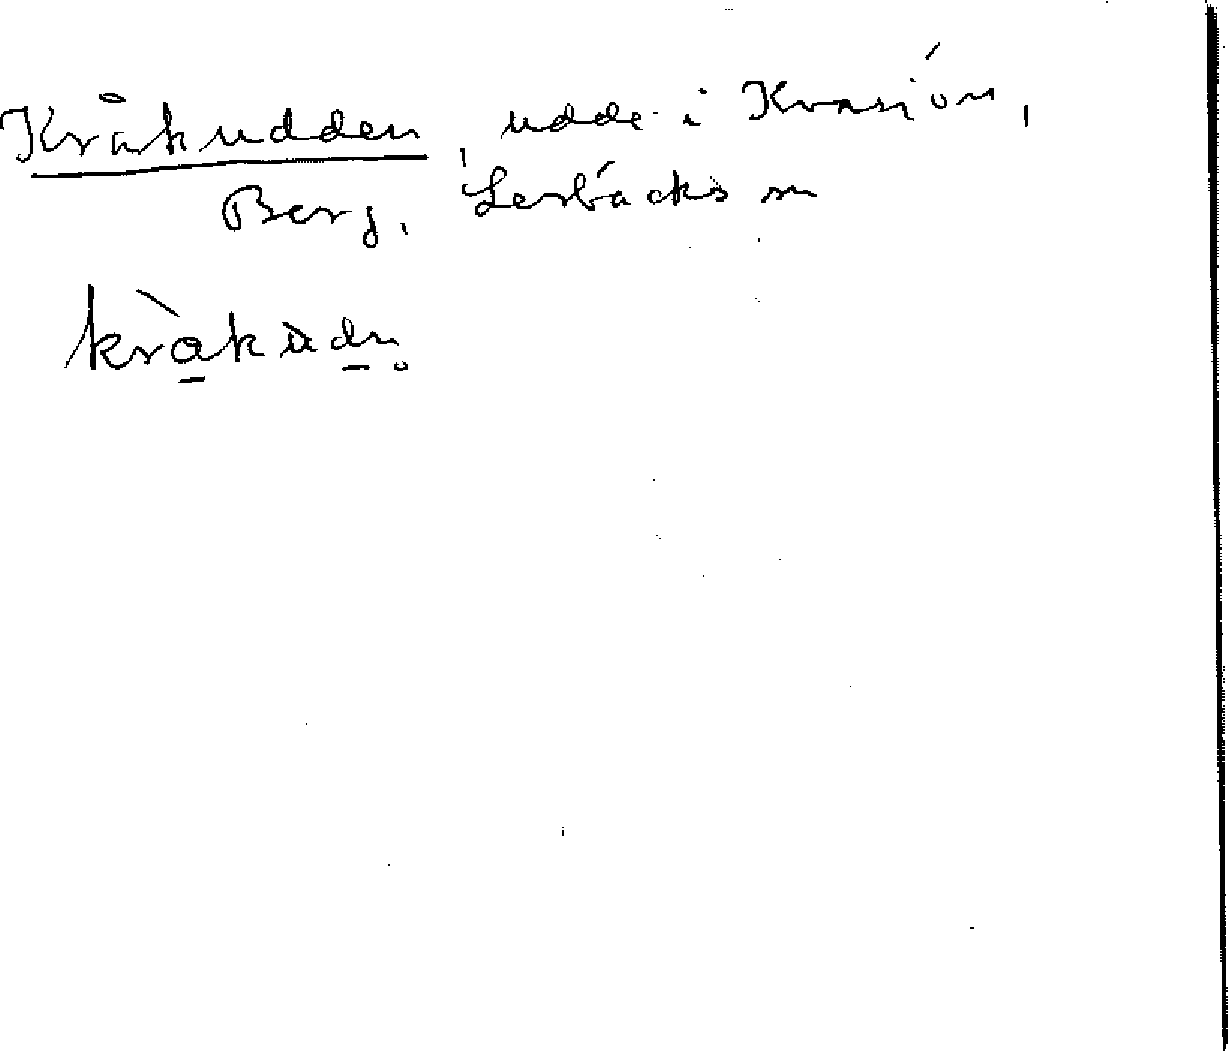 Kråkudden, udde i Kvasjön,
Berg, Lerbäcks sn
kråkudn